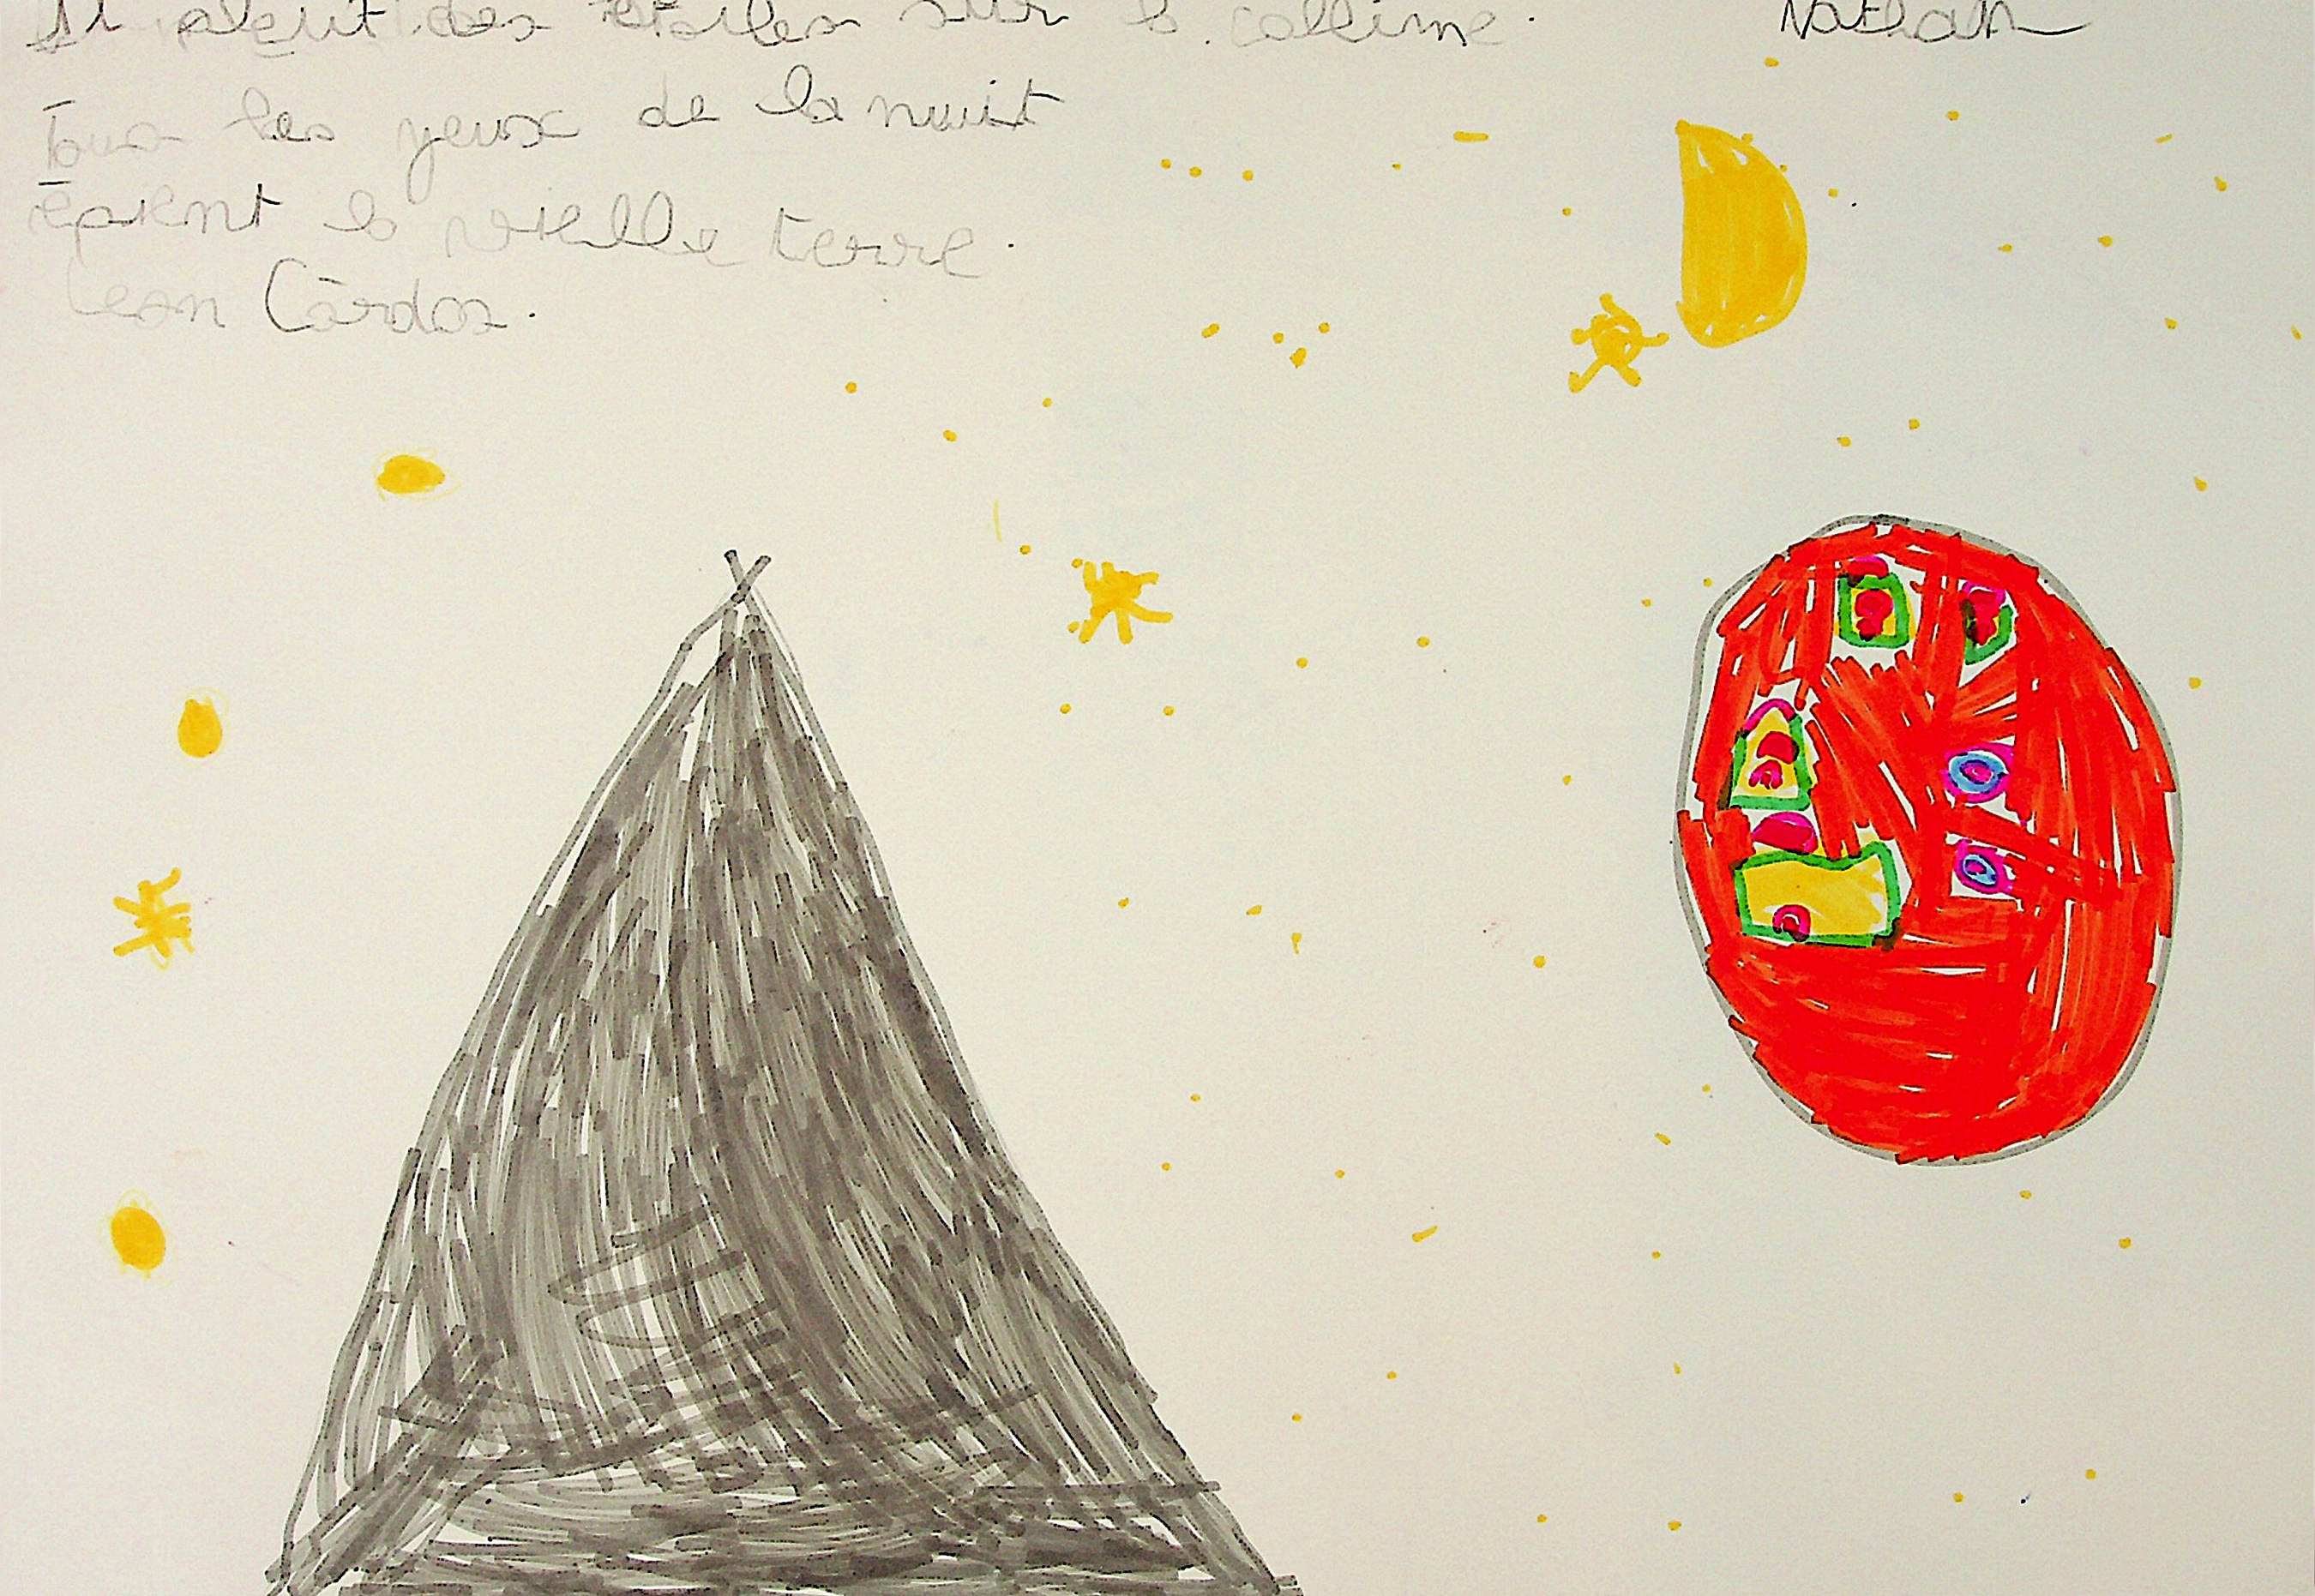 Il pleut des étoiles sur la colline. Nathan
Tous les yeux de la nuit
épient la vieille terre.
Jean Cardos.